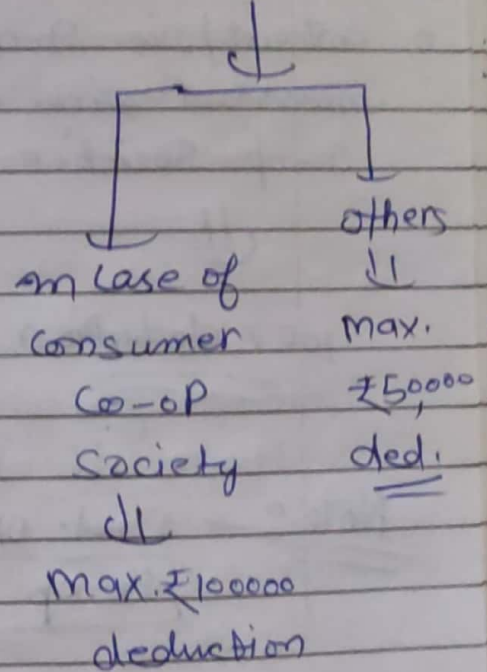 In case of
consumer
co-op
society
max. ₹100000
deduction
others
max.
₹50,000
ded.